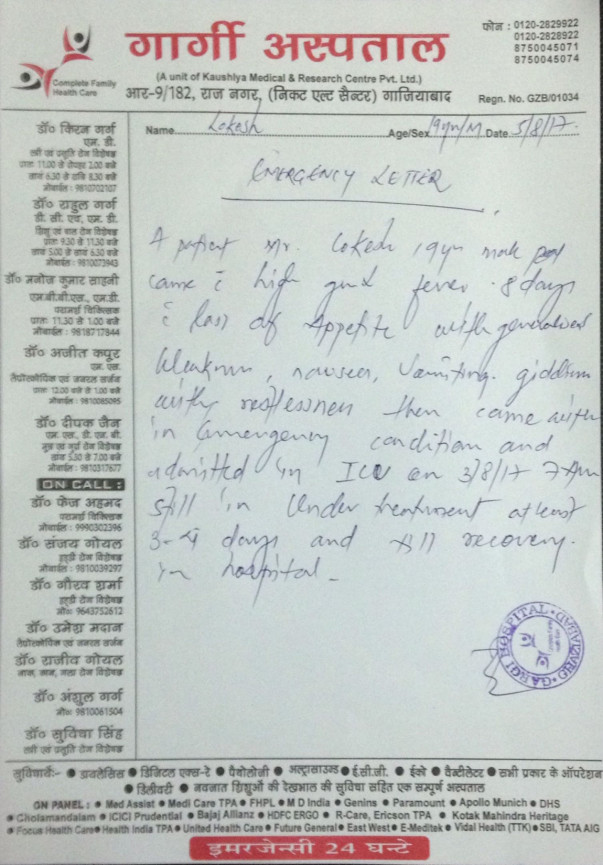 फोन : 0120-2829922
0120-2828922
8750045071
8750045074
गार्गी अस्पताल
Complete Family
Health Care
(A unit of Kaushlya Medical & Research Centre Pvt. Ltd.)
आर-9/182, राज नगर, (निकट एल्ट सैन्टर) गाजियाबाद
Regn. No. GZB/01034
Name Lokesh Age/Sex 19yr/M Date 5/8/17
डॉ० किरन गर्ग
एम. डी.
स्त्री एवं प्रसूति रोग विशेषज्ञ
प्रातः 11.00 से दोपहर 2.00 बजे
सायं 6.30 से रात्रि 8.30 बजे
मोबाईल : 9810702107
डॉ० राहुल गर्ग
डी. सी. एच, एम. डी.
शिशु एवं बाल रोग विशेषज्ञ
प्रातः 9.30 से 11.30 बजे
सायं 5.00 से सायं 6.30 बजे
मोबाईल : 9810073943
डॉ० मनोज कुमार साहनी
एम.बी.बी.एस., एम.डी.
परामर्श चिकित्सक
प्रातः 11.30 से 1.00 बजे
मोबाईल : 9818717844
डॉ० अजीत कपूर
एम. एस.
लैप्रोस्कोपिक एवं जनरल सर्जन
प्रातः 12.00 बजे से 1.00 बजे
मोबाईल : 9810085095
डॉ० दीपक जैन
एम. एस., डी. एन. बी.
मूत्र एवं गुर्दा रोग विशेषज्ञ
सायं 5.30 से 7.00 बजे
मोबाईल : 9810317677
ON CALL :
डॉ० फेज अहमद
परामर्श चिकित्सक
मोबाईल : 9990302396
डॉ० संजय गोयल
हड्डी रोग विशेषज्ञ
मोबाईल : 9810039297
डॉ० गौरव शर्मा
हड्डी रोग विशेषज्ञ
मोब: 9643752612
डॉ० उमेश मदान
लैप्रोस्कोपिक एवं जनरल सर्जन
डॉ० राजीव गोयल
नाक, कान, गला रोग विशेषज्ञ
डॉ० अंशुल गर्ग
मो० 9810061504
डॉ० सुविधा सिंह
स्त्री एवं प्रसूति रोग विशेषज्ञ
EMERGENCY LETTER
A patient Mr. Lokesh 19yr male
came c high grade fever 8 days
c loss of Appetite with generalised
Weakness, nausea, Vomiting. giddiness
with restlessness then came with
in emergency condition and
admitted in ICU on 3/8/17 7 Am
still in Under treatment at least
3-4 days and till recovery.
in hospital -
GARGI HOSPITAL GHAZIABAD
सुविधाऐं:- ● डायलेसिस ● डिजिटल एक्स-रे ● पैथोलोजी ● अल्ट्रासाउन्ड ● ई.सी.जी. ● ईको ● वैन्टीलेटर ● सभी प्रकार के ऑपरेशन
● डिलीवरी ● नवजात शिशुओं की देखभाल की सुविधा सहित एक सम्पूर्ण अस्पताल
ON PANEL : ● Med Assist ● Medi Care TPA ● FHPL ● M D India ● Genins ● Paramount ● Apollo Munich ● DHS
● Cholamandalam ● ICICI Prudential ● Bajaj Allianz ● HDFC ERGO ● R-Care, Ericson TPA ● Kotak Mahindra Heritage
● Focus Health Care ● Health India TPA ● United Health Care ● Future General ● East West ● E-Meditek ● Vidal Health (TTK) ● SBI, TATA AIG
इमरजेन्सी 24 घन्टे